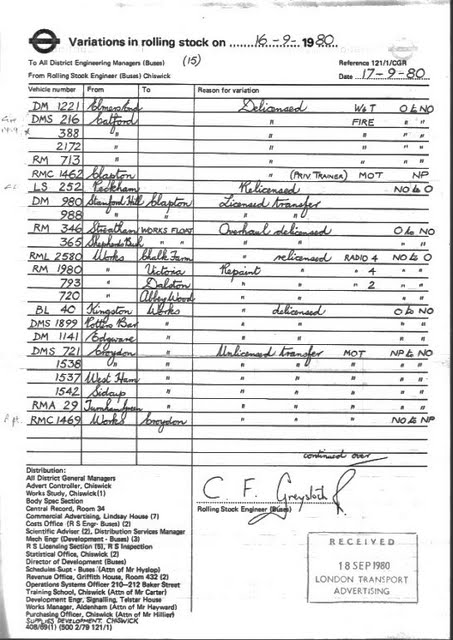 Variations in rolling stock on 16-9-1980.
To All District Engineering Managers (Buses) (15) Reference 121/1/CGR
From Rolling Stock Engineer (Buses) Chiswick Date 17-9-80
Vehicle number From To Reason for variation
DM 1221 Elmers End Delicensed W&T O to NO
DMS 216 Catford " FIRE " "
388 " " " " "
2172 " " " " "
RM 713 " " " " "
RMC 1462 Clapton " (PRIV. TRAINER) MOT NP
LS 252 Peckham Relicensed NO to O
DM 980 Stamford Hill Clapton Licensed transfer
988 " " " "
RM 346 Streatham WORKS FLOAT Overhaul delicensed O to NO
365 Shepherds Bush " " " " " "
RML 2580 Works Chalk Farm " relicensed RADIO 4 NO to O
RM 1980 " Victoria Repaint " " 4 " "
793 " Dalston " " " 2 " "
720 " Abbey Wood " " " "
BL 40 Kingston Works " delicensed O to NO
DMS 1899 Potters Bar " " " " "
DM 1141 Edgware " " " " "
DMS 721 Croydon " Unlicensed transfer MOT NP to NO
1538 " " " " " " "
1537 West Ham " " " " " "
1542 Sidcup " " " " " "
RMA 29 Turnham Green " " " " " "
RMC 1469 Works Croydon " " " NO to NP
continued over
Distribution:
All District General Managers
Advert Controller, Chiswick
Works Study, Chiswick (1)
Body Spec Section
Central Record, Room 34
Commercial Advertising, Lindsay House (7)
Costs Office (R S Engr- Buses) (2)
Scientific Adviser (2), Distribution Services Manager
Mech Engr (Development - Buses) (3)
R S Licensing Section (5), R S Inspection
Statistical Office, Chiswick (2)
Director of Development (Buses)
Schedules Supt - Buses (Attn of Mr Hyslop)
Revenue Office, Griffith House, Room 432 (2)
Operations Systems Officer 210-212 Baker Street
Training School, Chiswick (Attn of Mr Carter)
Development Engr, Signalling, Telstar House
Works Manager, Aldenham (Attn of Mr Hayward)
Purchasing Officer, Chiswick (Attn of Mr Hillier)
SUPPLIES DEVELOPMENT. CHISWICK
408/69(1) (500 2/79 121/1)
C. F. Greystock
Rolling Stock Engineer (Buses)
RECEIVED
18 SEP 1980
LONDON TRANSPORT
ADVERTISING